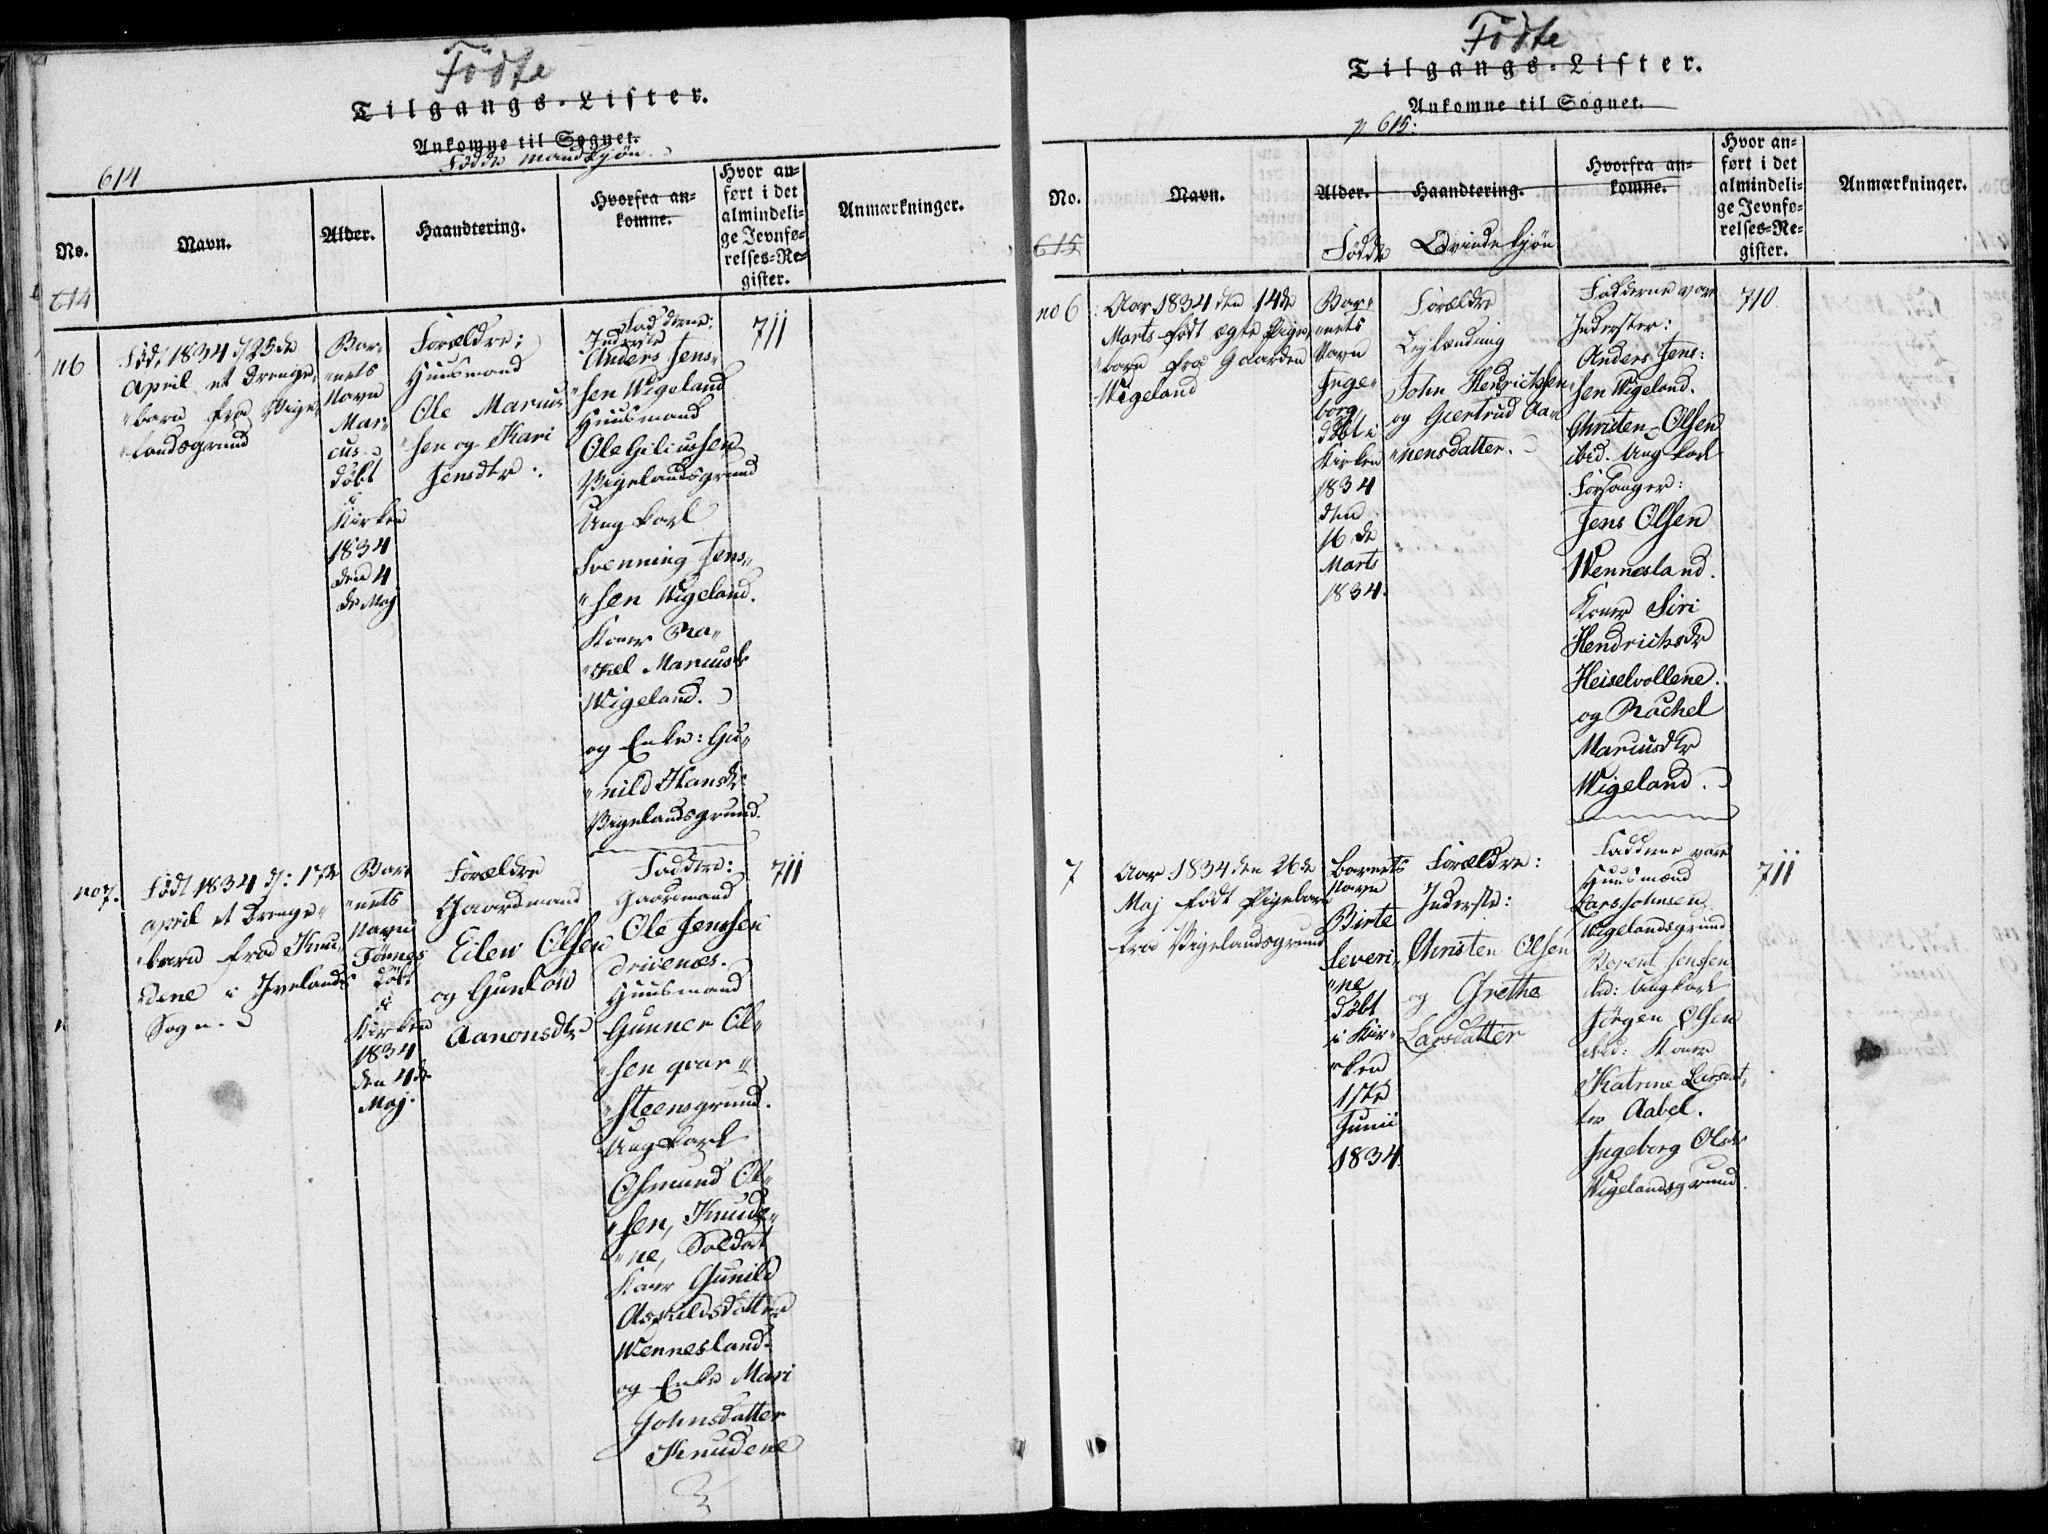 Födte
Tilgangs-Lister.
Ankomne til Sognet.
Födde Mandkjøn
614
No.
Navn.
Alder.
Haandtering.
Hvorfra an-
komne.
Hvor an-
ført i det
almindeli-
ge Jevnfø-
relses-Re-
gister.
Anmærkninger.
614
n6
Födt 1834 d 25de
April et Drenge-
"barn fra Vige-
"landsgrund
Bar-
"nets
Navn
Mar-
cus
döbt
i
Kirken
1834
den 4
de Maj
Forældre:
Huusmand
Ole Marius
"sen og Kari
Jensdtr:
Faddere:
Inderste
Anders Jens-
"sen Wigeland
Huusmand
Ole Giliussen
Vigelandsgrund
Ungkarl
Svenning Jens-
"sen Wigeland.
Koner Ra-
"kel Mariusdr
Wigeland.
og Enke: Gu-
"nild Hansdr
Vigelandsgrund.
711
no 7.
Födt 1834 d: 17de
April et Drenge-
"barn fra Knu-
dene i Ivelands
Sogn.
Bar
"nets
Navn
Tönnes
döbt
i
Kirken
1834
den 4de
Maj.
Forældre
Gaardmand
Eilev Olsen
og Gunlöv
Aanonsdtr
Faddere:
Gaardmand
Ole Jenssen
Drivenæs.
Huusmand
Gunner Ol-
"sen qvar-
"steensgrund.
Ungkarl
Osmund Ol-
"sen, Knude-
"ne, Soldat
Koner Gunild
Aspuldsdatter
Wennesland.
og Enke Mari
Johnsdatter
Knudene
711
Födte
Tilgangs-Lister.
Ankomne til Sognet.
p 615:
No.
Navn.
Alder.
Haandtering.
Hvorfra an-
komne.
Hvor an-
ført i det
almindeli-
ge Jevnfø-
relses-Re-
gister.
Anmærkninger.
615
Födde Qvindekjön
no 6
Aar 1834 den 14de
Marts födt ægte Pige-
"barn fra Gaarden
Wigeland
Bar-
"nets
Navn
Inge-
borg
döbt i
Kirken
1834
den
16de
Marts
1834.
Forældre
Lejlænding
John Hendrichsen
og Giertrud Aa-
"nensdatter.
Fadderne vare
Inderster:
Anders Jens:
sen Wigeland.
Christen Olsen
ibid. Ungkarl
Forsanger:
Jens Olsen
Wennesland.
Koner Siri
Hendrichsdr
Heiselvollene.
og Rachel
Mariusdtr
Wigeland.
710.
7
Aar 1834 den 26de
Maj födt Pigebarn
fra Vigelandsgrund
barnets
Navn
Birte
Severi-
"ne
döbt
i Kir-
"ken
1ste
Junii
1834.
Forældre:
Inderste:
Christen Olsen
og Grethe
Larsdatter
Faddere vare
Huusmænd
Lars Johnsen
Wigelandsgrund
Berent Jenssen
ibid: Ungkarl
Jörgen Olsen
ibid: Koner
Katrine Larsdat-
ter Aabel.
Ingeborg Olsdr
Wigelandsgrund.
711